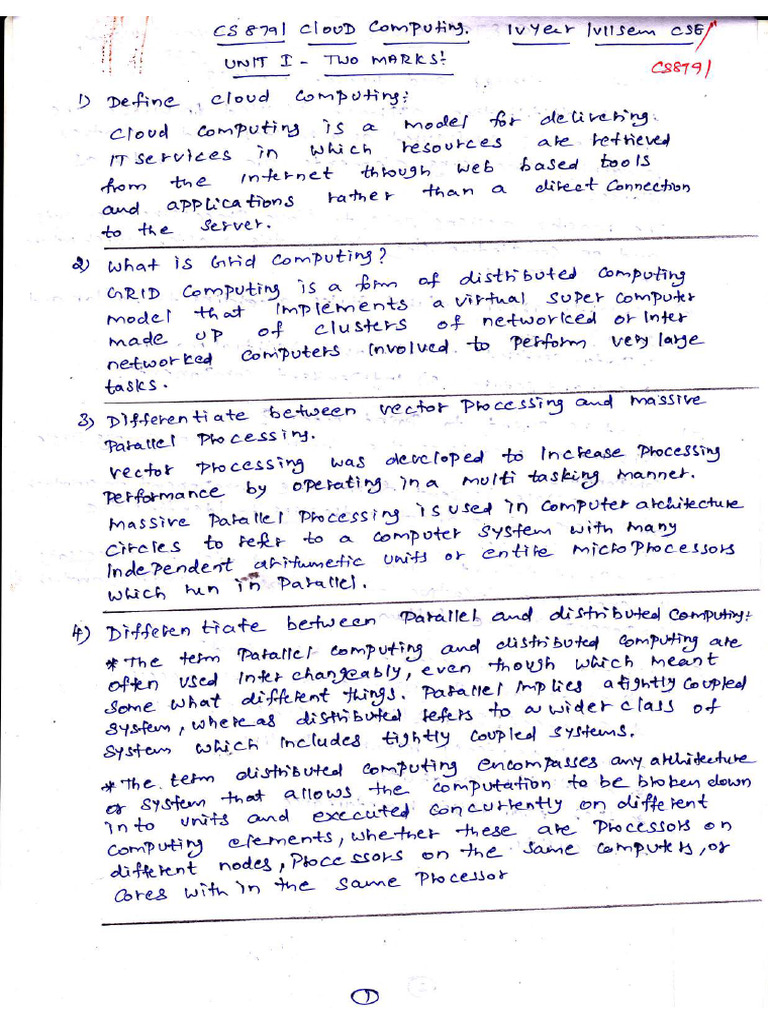 CS 8791 CLOUD Computing. IV Year / VII Sem CSE
CS8791
UNIT I - TWO MARKS:
1) Define Cloud Computing:
Cloud Computing is a model for delivering
IT services in which resources are retrieved
from the internet through web based tools
and applications rather than a direct connection
to the server.
2) What is Grid Computing?
GRID Computing is a form of distributed computing
model that implements a virtual super computer
made up of clusters of networked or Inter
networked computers involved to perform very large
tasks.
3) Differentiate between vector processing and Massive
Parallel Processing.
vector processing was developed to increase processing
performance by operating in a multi tasking manner.
Massive Parallel Processing is used in computer architecture
circles to refer to a computer system with many
independent arithmetic units or entire microprocessors
which run in parallel.
4) Differentiate between Parallel and distributed computing:
* The term Parallel computing and distributed computing are
often used interchangeably, even though which meant
some what different things. Parallel implies a tightly coupled
system, whereas distributed refers to a wider class of
system which includes tightly coupled systems.
* The term distributed computing encompasses any architecture
or system that allows the computation to be broken down
into units and executed concurrently on different
computing elements, whether these are processors on
different nodes, processors on the same computers, or
cores with in the same processor
1